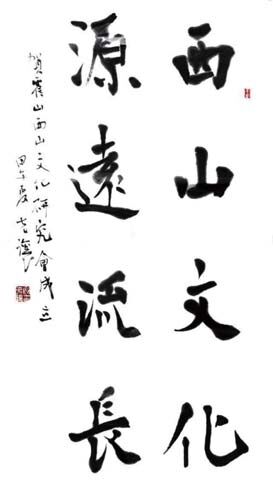 西山文化
源遠流長
賀霍山西山文化研究會成立
甲午夏